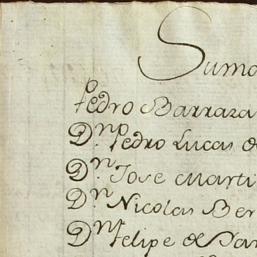 Suma
Pedro Barraza
Dn. Pedro Lucas d
Dn. Jose Marti
Dn. Nicolas Ber
Dn. Felipe de Sa